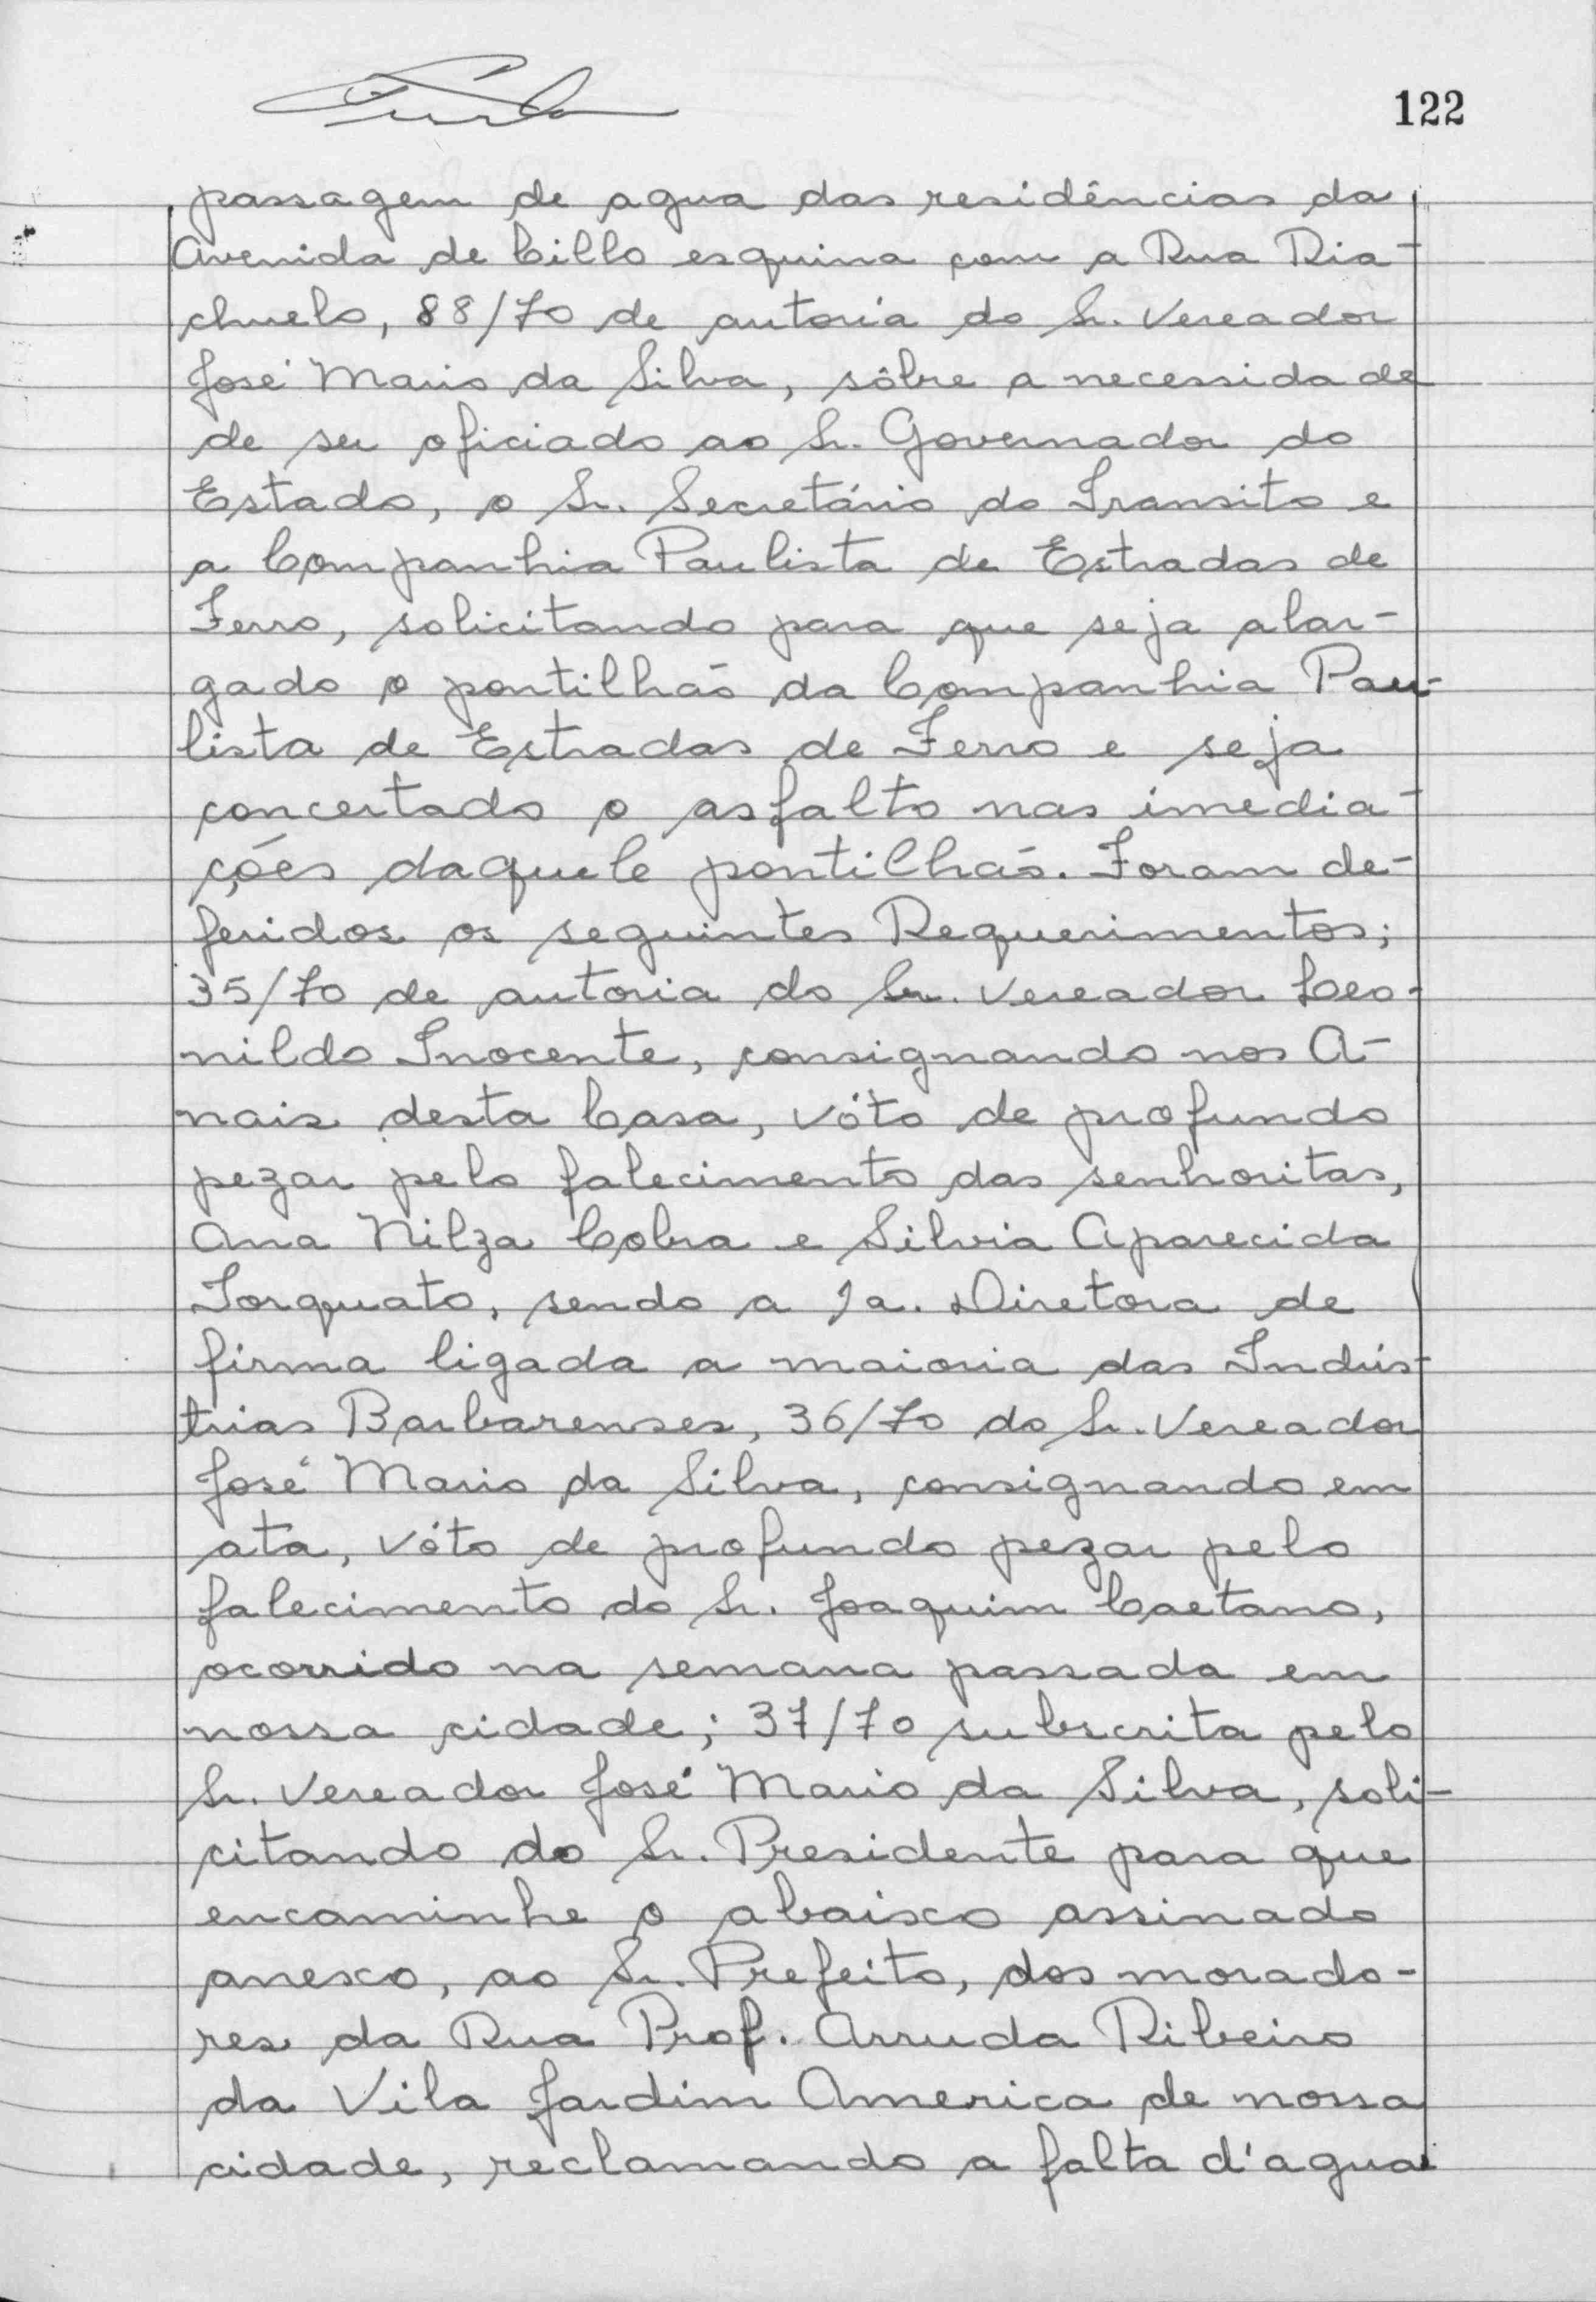 122
passagem de agua das residências da
Avenida de Cillo esquina com a Rua Ria-
chuelo, 88/70 de autoria do Sr. Vereador
José Mario da Silva, sôbre a necessidade
de ser oficiado ao Sr. Governador do
Estado, o Sr. Secretário do Transito e
a Companhia Paulista de Estradas de
Ferro, solicitando para que seja alar-
gado o pontilhão da Companhia Pau-
lista de Estradas de Ferro e seja
concertado o asfalto nas imedia-
ções daquele pontilhão. Foram de-
feridos os seguintes Requerimentos;
35/70 de autoria do Sr. Vereador Leo-
nildo Inocente, consignando nos A-
nais desta Casa, vóto de profundo
pezar pelo falecimento das senhoritas,
Ana Nilza Cobra e Silvia Aparecida
Torquato, sendo a 1a. Diretora de
firma ligada a maioria das Indús-
trias Barbarenses, 36/70 do Sr. Vereador
José Mario da Silva, consignando em
ata, vóto de profundo pezar pelo
falecimento do Sr. Joaquim Caetano,
ocorrido na semana passada em
nossa cidade; 37/70 subscrita pelo
Sr. Vereador José Mario da Silva, soli-
citando do Sr. Presidente para que
encaminhe o abaixo assinado
anexo, ao Sr. Prefeito, dos morado-
res da Rua Prof. Arruda Ribeiro
da Vila Jardim America de nossa
cidade, reclamando a falta d'agua